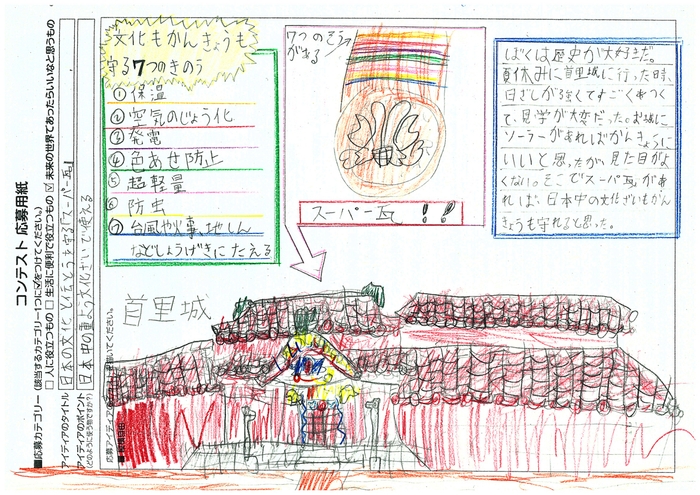 コンテスト 応募用紙
■応募カテゴリー(該当するカテゴリー1つに☑をつけてください。)
□ 人に役立つもの □ 生活に便利で役立つもの ☑ 未来の世界であったらいいなと思うもの
アイディアのタイトル
日本の文化と伝とうを守る「スーパー瓦」
アイディアのポイント
(どのように使う物ですか?)
日本中の重よう文化ざいで使える
文化もかんきょうも
守る7つのきのう
① 保温
② 空気のじょう化
③ 発電
④ 色あせ防止
⑤ 超軽量
⑥ 防虫
⑦ 台風や火事、地しん
などしょうげきにたえる
7つのそう
がある
スーパー瓦!!
ぼくは歴史が大好きだ。
夏休みに首里城に行った時、
日ざしが強くてすごくあつく
て、見学が大変だった。お城に
ソーラーがあればかんきょうに
いいと思ったが、見た目がよ
くない。そこでスーパー瓦があ
れば、日本中の文化ざいもかん
きょうも守れると思った。
首里城